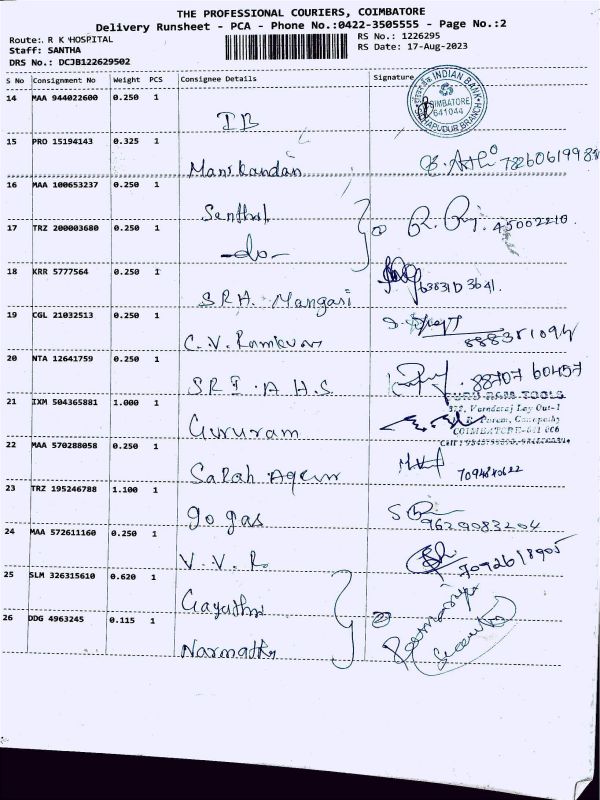 THE PROFESSIONAL COURIERS, COIMBATORE
Delivery Runsheet - PCA - Phone No.:0422-3505555 - Page No.:2
Route: R K HOSPITAL
RS No.: 1226295
Staff: SANTHA
RS Date: 17-Aug-2023
DRS No.: DCJB122629502
S No Consignment No Weight PCS Consignee Details Signature
14 MAA 944022600 0.250 1 IB
INDIAN BANK
COIMBATORE
641044
BRANCH
15 PRO 15194143 0.325 1 Manikandan
16 MAA 100653237 0.250 1 Senthil
17 TRZ 200003680 0.250 1 -do-
18 KRR 5777564 0.250 1 S.R.H. Mangani
19 CGL 21032513 0.250 1 C.V. Ramkuar
20 NTA 12641759 0.250 1 SRI.A.H.S
88707 60457
21 IXM 504365881 1.000 1 Gururam
COIMBATORE-641 006
22 MAA 570288058 0.250 1 Sarah
23 TRZ 195246788 1.100 1 go gas
9629083204
24 MAA 572611160 0.250 1 V.V.R.
7092618905
25 SLM 326315610 0.620 1 Gayathri
26 DDG 4963245 0.115 1 Narmatha
Security